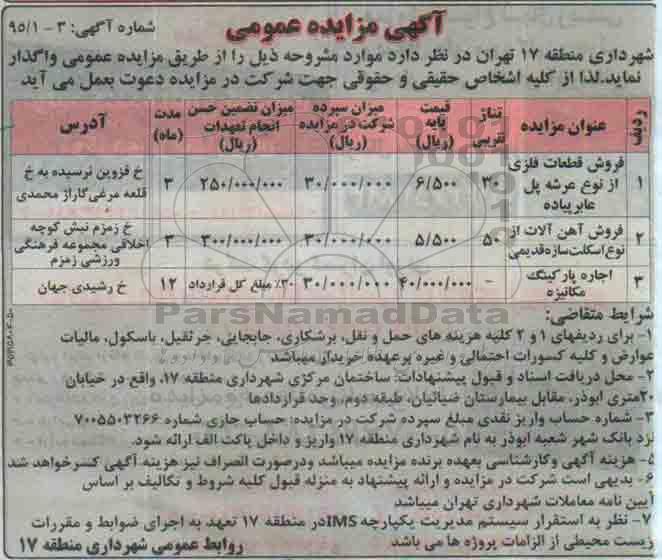 آگهی مزایده عمومی
شماره آگهی: ۳-۹۵/۱
شهرداری منطقه ۱۷ تهران در نظر دارد موارد مشروحه ذیل را از طریق مزایده عمومی واگذار
نماید. لذا از کلیه اشخاص حقیقی و حقوقی جهت شرکت در مزایده دعوت بعمل می آید
ردیف | عنوان مزایده | تناژ تقریبی | قیمت پایه (ریال) | میزان سپرده شرکت در مزایده (ریال) | میزان تضمین حسن انجام تعهدات (ریال) | مدت (ماه) | آدرس
۱ | فروش قطعات فلزی از نوع عرشه پل عابرپیاده | ۳۰ | ۶/۵۰۰ | ۳۰/۰۰۰/۰۰۰ | ۲۵۰/۰۰۰/۰۰۰ | ۳ | خ قزوین نرسیده به خ قلعه مرغی گاراژ محمدی
۲ | فروش آهن آلات از نوع اسکلت سازه قدیمی | ۵۰ | ۵/۵۰۰ | ۳۰/۰۰۰/۰۰۰ | ۳۰۰/۰۰۰/۰۰۰ | ۳ | خ زمزم نبش کوچه اخلاقی مجموعه فرهنگی ورزشی زمزم
۳ | اجاره پارکینگ مکانیزه | - | ۴۰/۰۰۰/۰۰۰ | ۳۰/۰۰۰/۰۰۰ | ۳۰٪ مبلغ کل قرارداد | ۱۲ | خ رشیدی جهان
ParsNamadData
شرایط متقاضی:
۱- برای ردیفهای ۱ و ۲ کلیه هزینه های حمل و نقل، برشکاری، جابجایی، جرثقیل، باسکول، مالیات
عوارض و کلیه کسورات احتمالی و غیره برعهده خریدار میباشد
۲- محل دریافت اسناد و قبول پیشنهادات: ساختمان مرکزی شهرداری منطقه ۱۷، واقع در خیابان
۲۰متری ابوذر، مقابل بیمارستان ضیائیان، طبقه دوم، وحد قراردادها
۳- شماره حساب واریز نقدی مبلغ سپرده شرکت در مزایده: حساب جاری شماره ۷۰۰۵۵۰۳۲۶۶
نزد بانک شهر شعبه ابوذر به نام شهرداری منطقه ۱۷ واریز و داخل پاکت الف ارائه شود.
۵- هزینه آگهی وکارشناسی بعهده برنده مزایده میباشد ودرصورت انصراف نیز هزینه آگهی کسرخواهد شد
۶- بدیهی است شرکت در مزایده و ارائه پیشنهاد به منزله قبول کلیه شروط و تکالیف بر اساس
آیین نامه معاملات شهرداری تهران میباشد
۷- نظر به استقرار سیستم مدیریت یکپارچه IMSدر منطقه ۱۷ تعهد به اجرای ضوابط و مقررات
زیست محیطی از الزامات پروژه ها می باشد
روابط عمومی شهرداری منطقه ۱۷